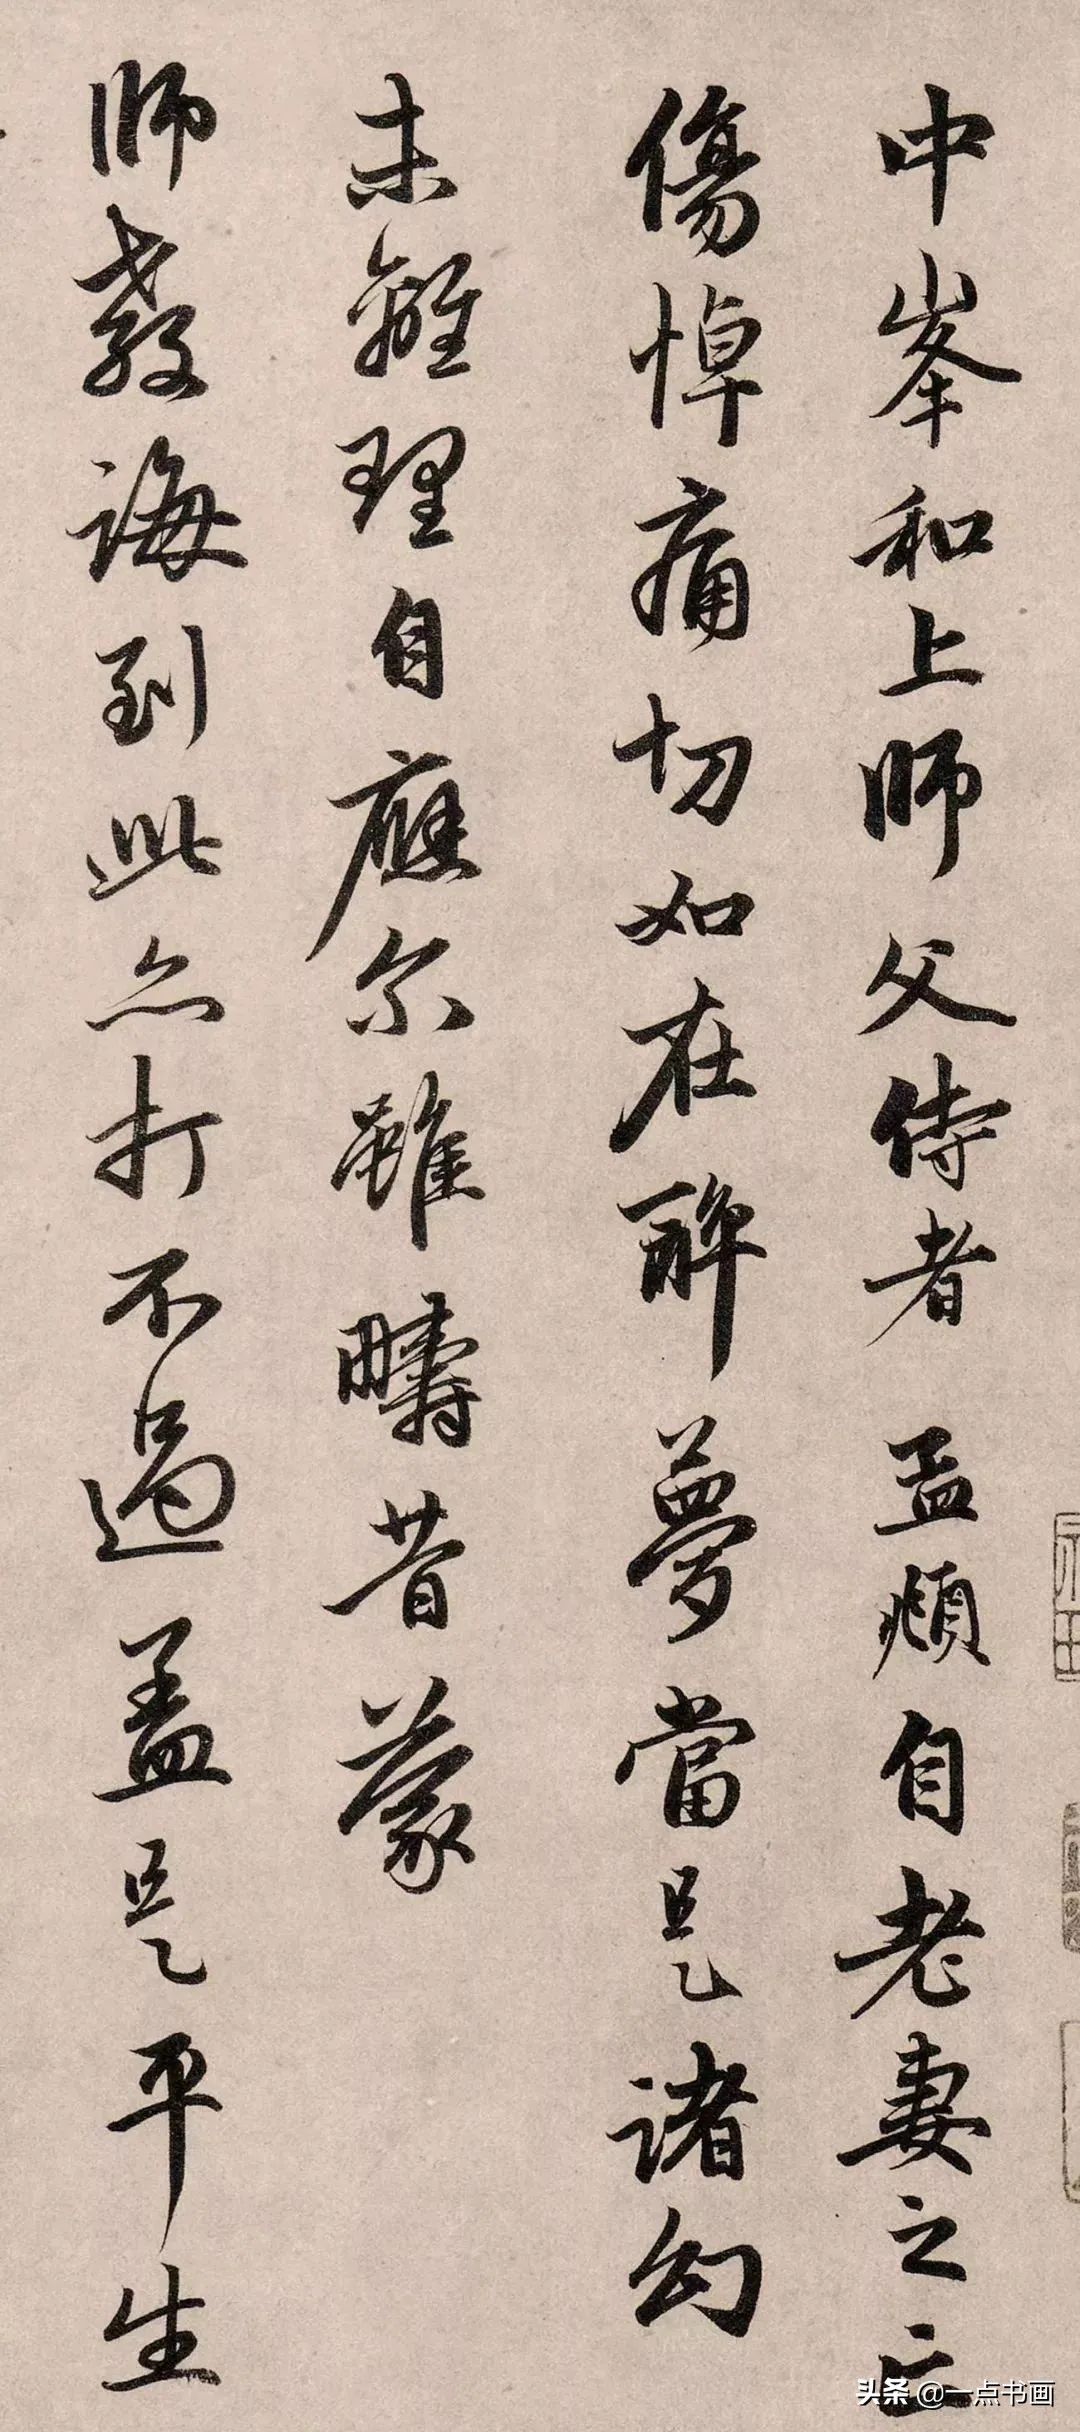 中峯和上師父侍者 孟頫自老妻之亡
傷悼痛切如在醉夢當是諸幻
未離理自應尔雖疇昔蒙
師教誨到此亦打不過盖是平生
头条 @一点书画